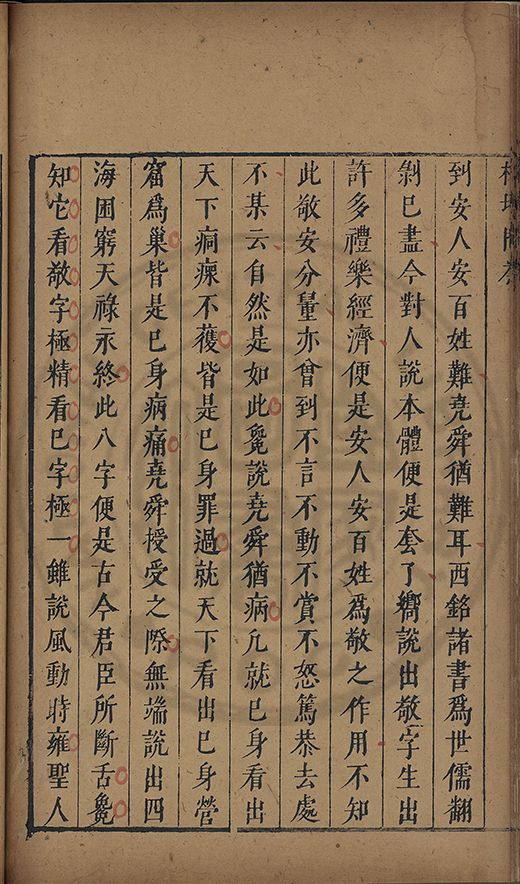 到安人安百姓難堯舜猶難耳西銘諸書爲世儒翻
剝已盡今對人說本體便是套了嚮說出敬字生出
許多禮樂經濟便是安人安百姓爲敬之作用不知
此敬安分量亦曾到不言不動不賞不怒篤恭去處
不某云自然是如此毚說堯舜猶病凢就巳身看出
天下痌瘝不獲皆是巳身罪過就天下看出巳身營
窟爲巢皆是巳身病痛堯舜授受之際無端說出四
海困窮天祿永終此八字便是古今君臣所斷舌毚
知它看敬字極精看巳字極一雖說風動時雍聖人